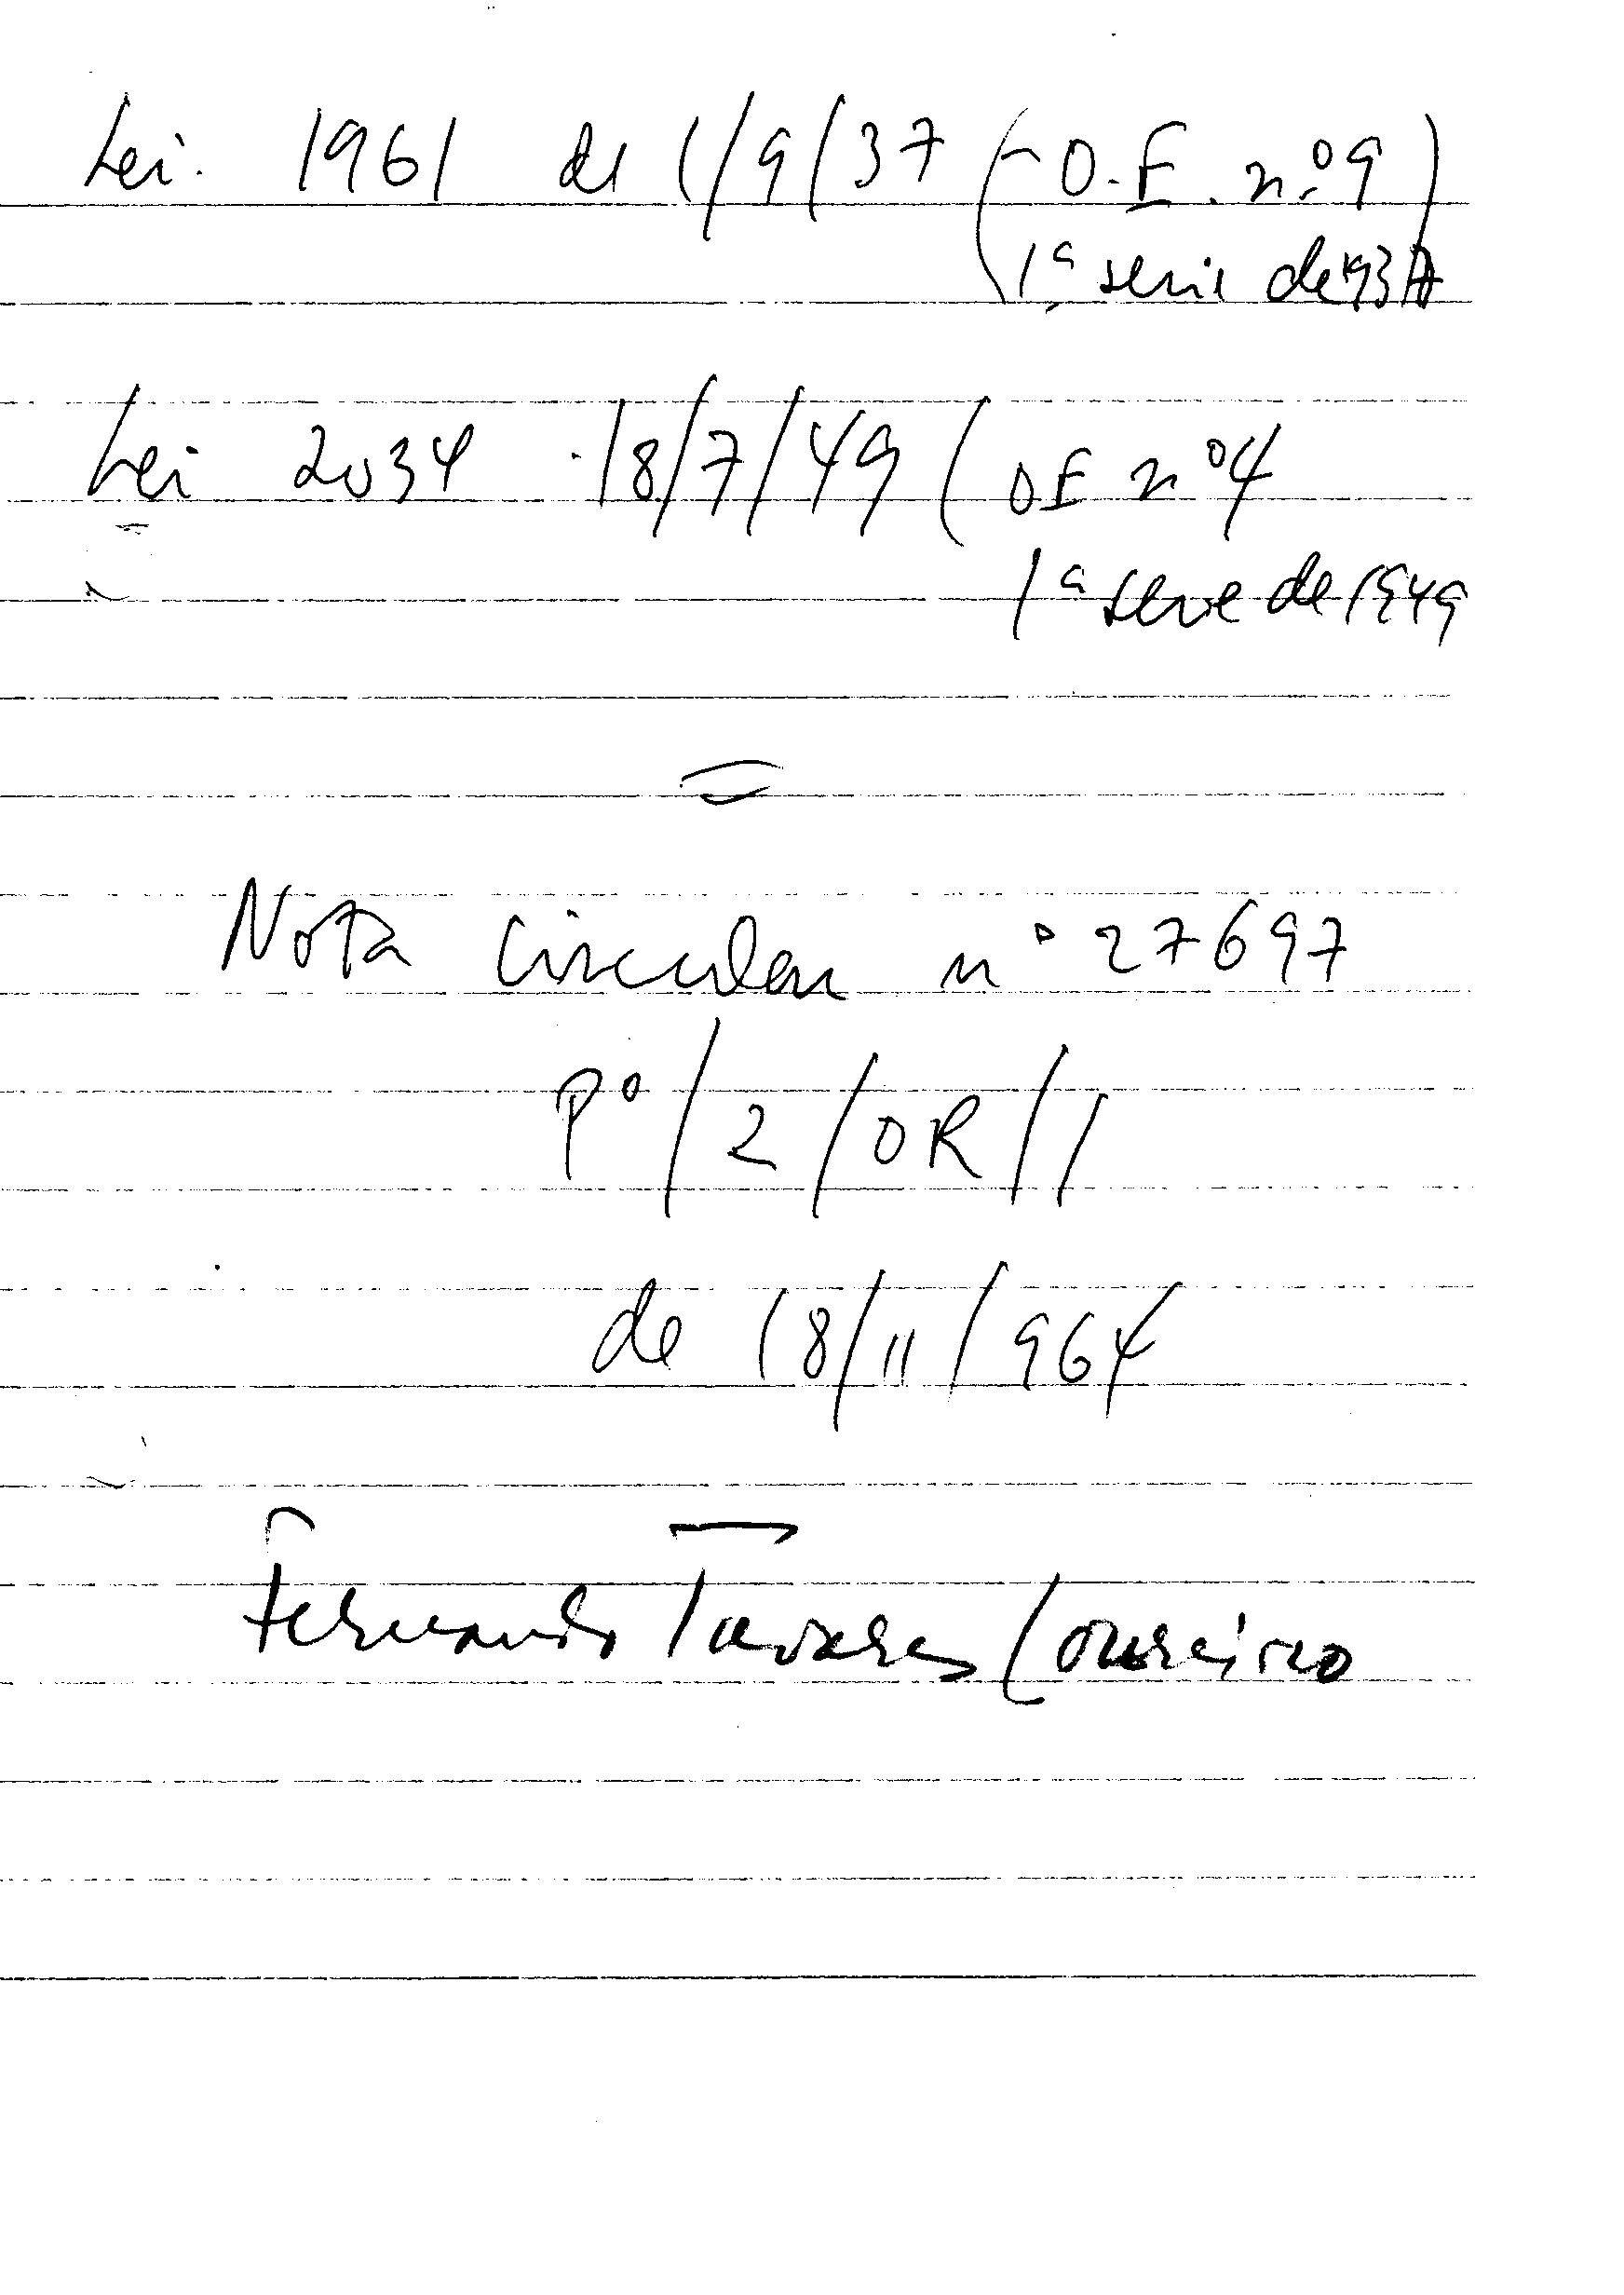 Lei. 1961 de 1/9/37 (- O.E. n.º 9)
1ª serie de 1937
Lei 2034 18/7/49 (OE nº 4
1ª serie de 1949
Nota Circular nº 27697
Pº/2/OR/1
de 18/11/964
Fernando Tavares Loureiro